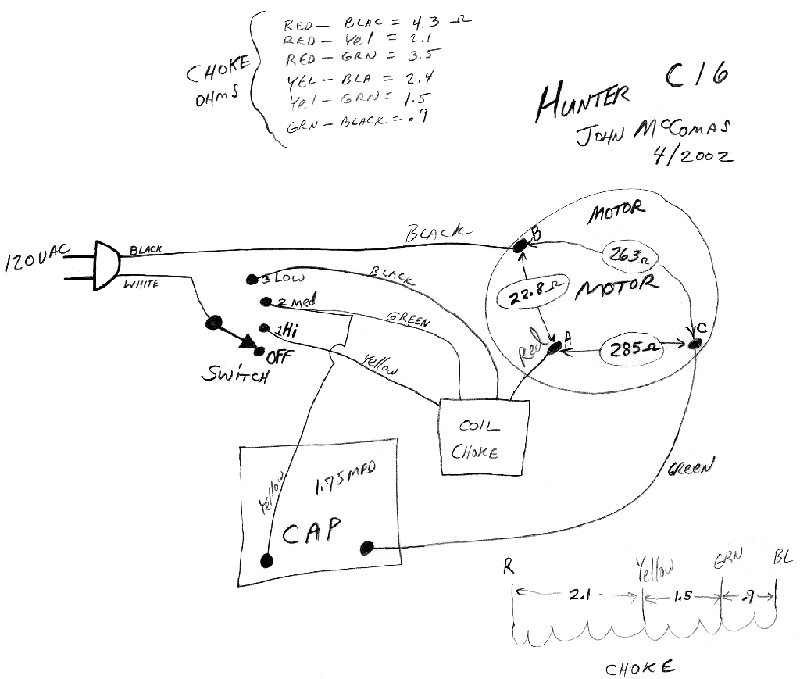 RED - BLAC = 4.3 Ω
RED - Yel = 2.1
RED - GRN = 3.5
YEL - BLA = 2.4
Yel - GRN = 1.5
GRN - BLACK = .9
CHOKE
OHMS
HUNTER C16
JOHN McCOMAS
4/2002
120VAC
BLACK
WHITE
BLACK
MOTOR
B
263Ω
22.8Ω
MOTOR
Red
A
285Ω
C
3 LOW
BLACK
2 MED
GREEN
1 Hi
OFF
Yellow
SWITCH
COIL
CHOKE
Yellow
1.75 MFD
CAP
GREEN
R
Yellow
GRN
BL
2.1
1.5
.9
CHOKE